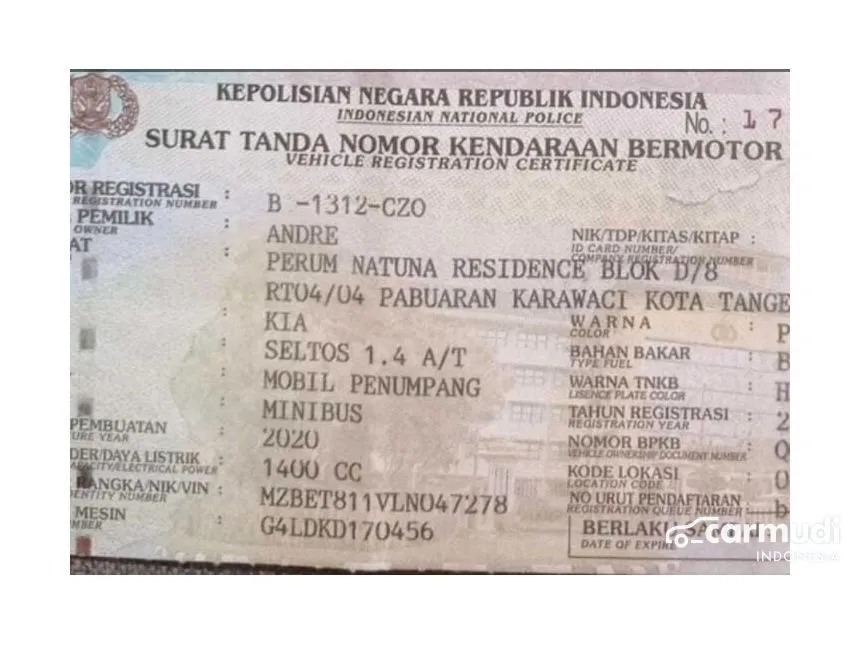 KEPOLISIAN NEGARA REPUBLIK INDONESIA
INDONESIAN NATIONAL POLICE
No. : 17
SURAT TANDA NOMOR KENDARAAN BERMOTOR
VEHICLE REGISTRATION CERTIFICATE
OR REGISTRASI : B -1312-CZO
REGISTRATION NUMBER
PEMILIK : ANDRE
OWNER
NIK/TDP/KITAS/KITAP :
ID CARD NUMBER/
COMPANY REGISTRATION NUMBER
AT : PERUM NATUNA RESIDENCE BLOK D/8
RT04/04 PABUARAN KARAWACI KOTA TANGE
: KIA
WARNA : P
COLOR
: SELTOS 1.4 A/T
BAHAN BAKAR : B
TYPE FUEL
: MOBIL PENUMPANG
WARNA TNKB : H
LISENCE PLATE COLOR
: MINIBUS
TAHUN REGISTRASI : 2
REGISTRATION YEAR
PEMBUATAN : 2020
URE YEAR
NOMOR BPKB : Q
VEHICLE OWNERSHIP DOCUMENT NUMBER
DER/DAYA LISTRIK : 1400 CC
APACITY/ELECTRICAL POWER
KODE LOKASI : 0
LOCATION CODE
RANGKA/NIK/VIN : MZBET811VLN047278
DENTITY NUMBER
NO URUT PENDAFTARAN :
REGISTRATION QUEUE NUMBER
MESIN : G4LDKD170456
MBER
BERLAKU
DATE OF EXPIRE
carmudi
INDONESIA